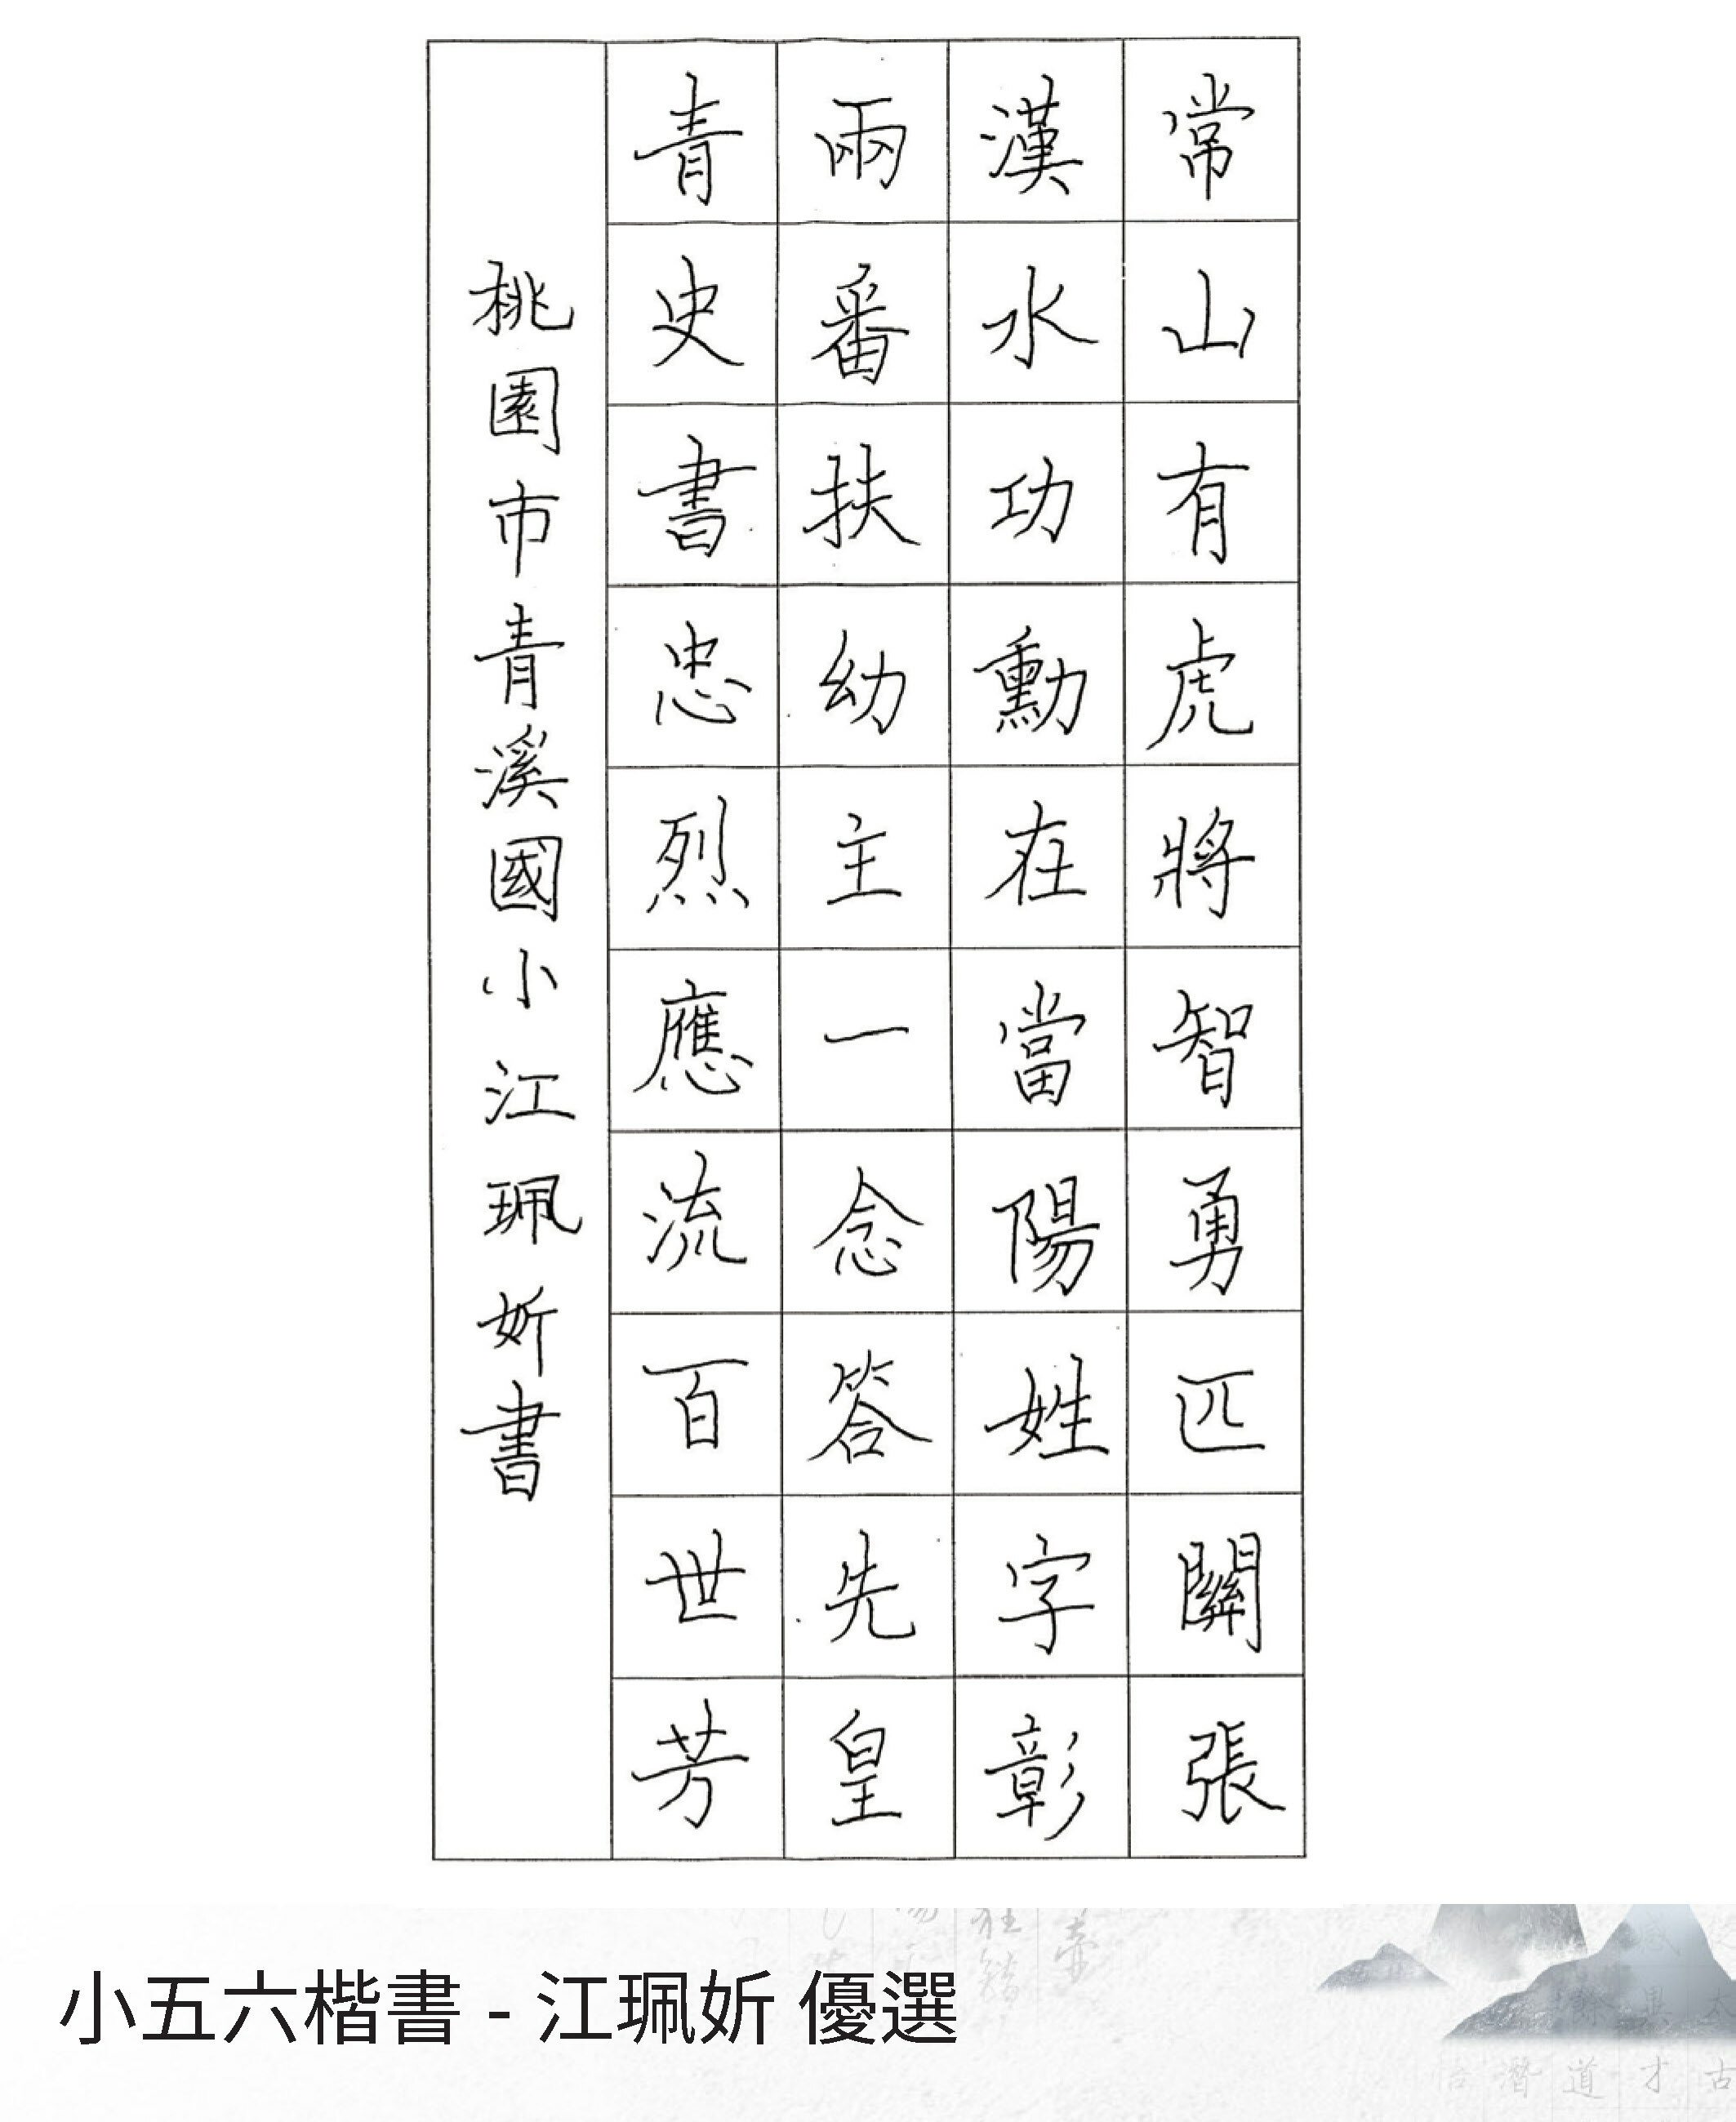 常山有虎將智勇匹關張
漢水功勳在當陽姓字彰
兩番扶幼主一念答先皇
青史書忠烈應流百世芳
桃園市青溪國小江珮妡書
小五六楷書 - 江珮妡 優選